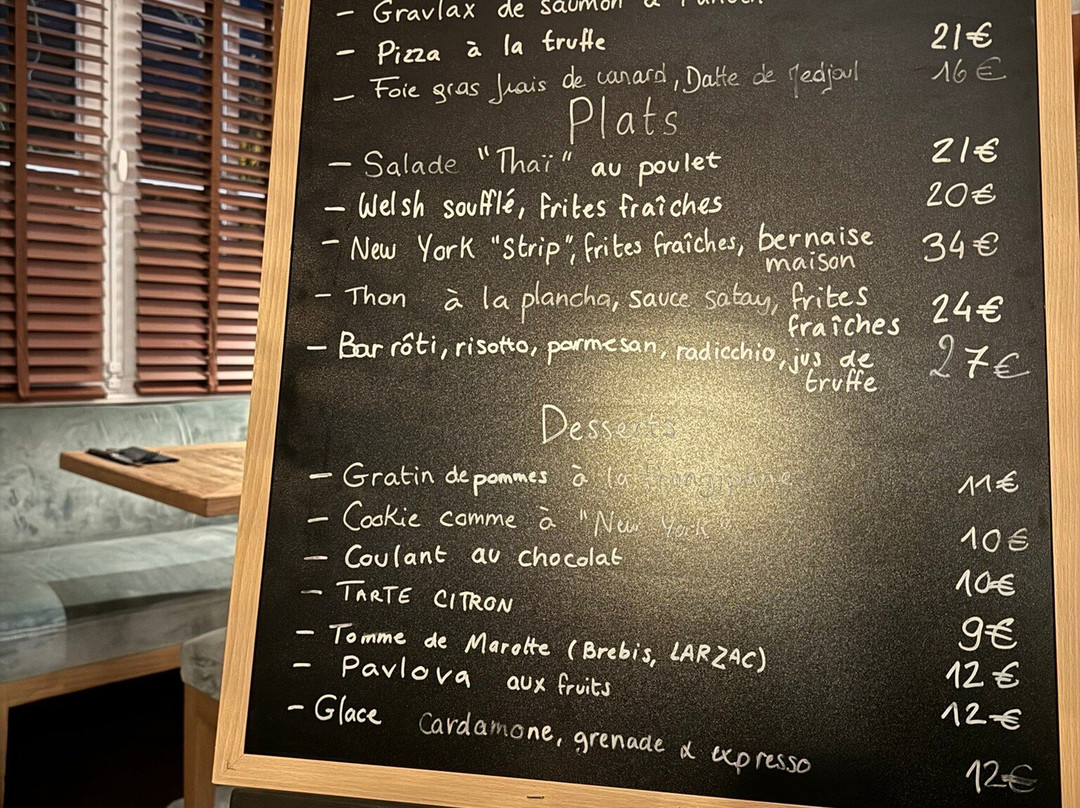 - Gravlax de saumon
- Pizza à la truffe 21€
- Foie gras frais de canard, Datte de Medjoul 16€
Plats
- Salade "Thaï" au poulet 21€
- Welsh soufflé, frites fraîches 20€
- New York "Strip", frites fraîches, bernaise 34€
maison
- Thon à la plancha, sauce satay, frites 24€
fraîches
- Bar rôti, risotto, parmesan, radicchio, jus de 27€
truffe
Desserts
- Gratin de pommes à la frangipane 11€
- Cookie comme à "New York" 10€
- Coulant au chocolat 10€
- TARTE CITRON 9€
- Tomme de Marotte (Brebis, LARZAC) 12€
- Pavlova aux fruits 12€
- Glace Cardamone, grenade & expresso 12€